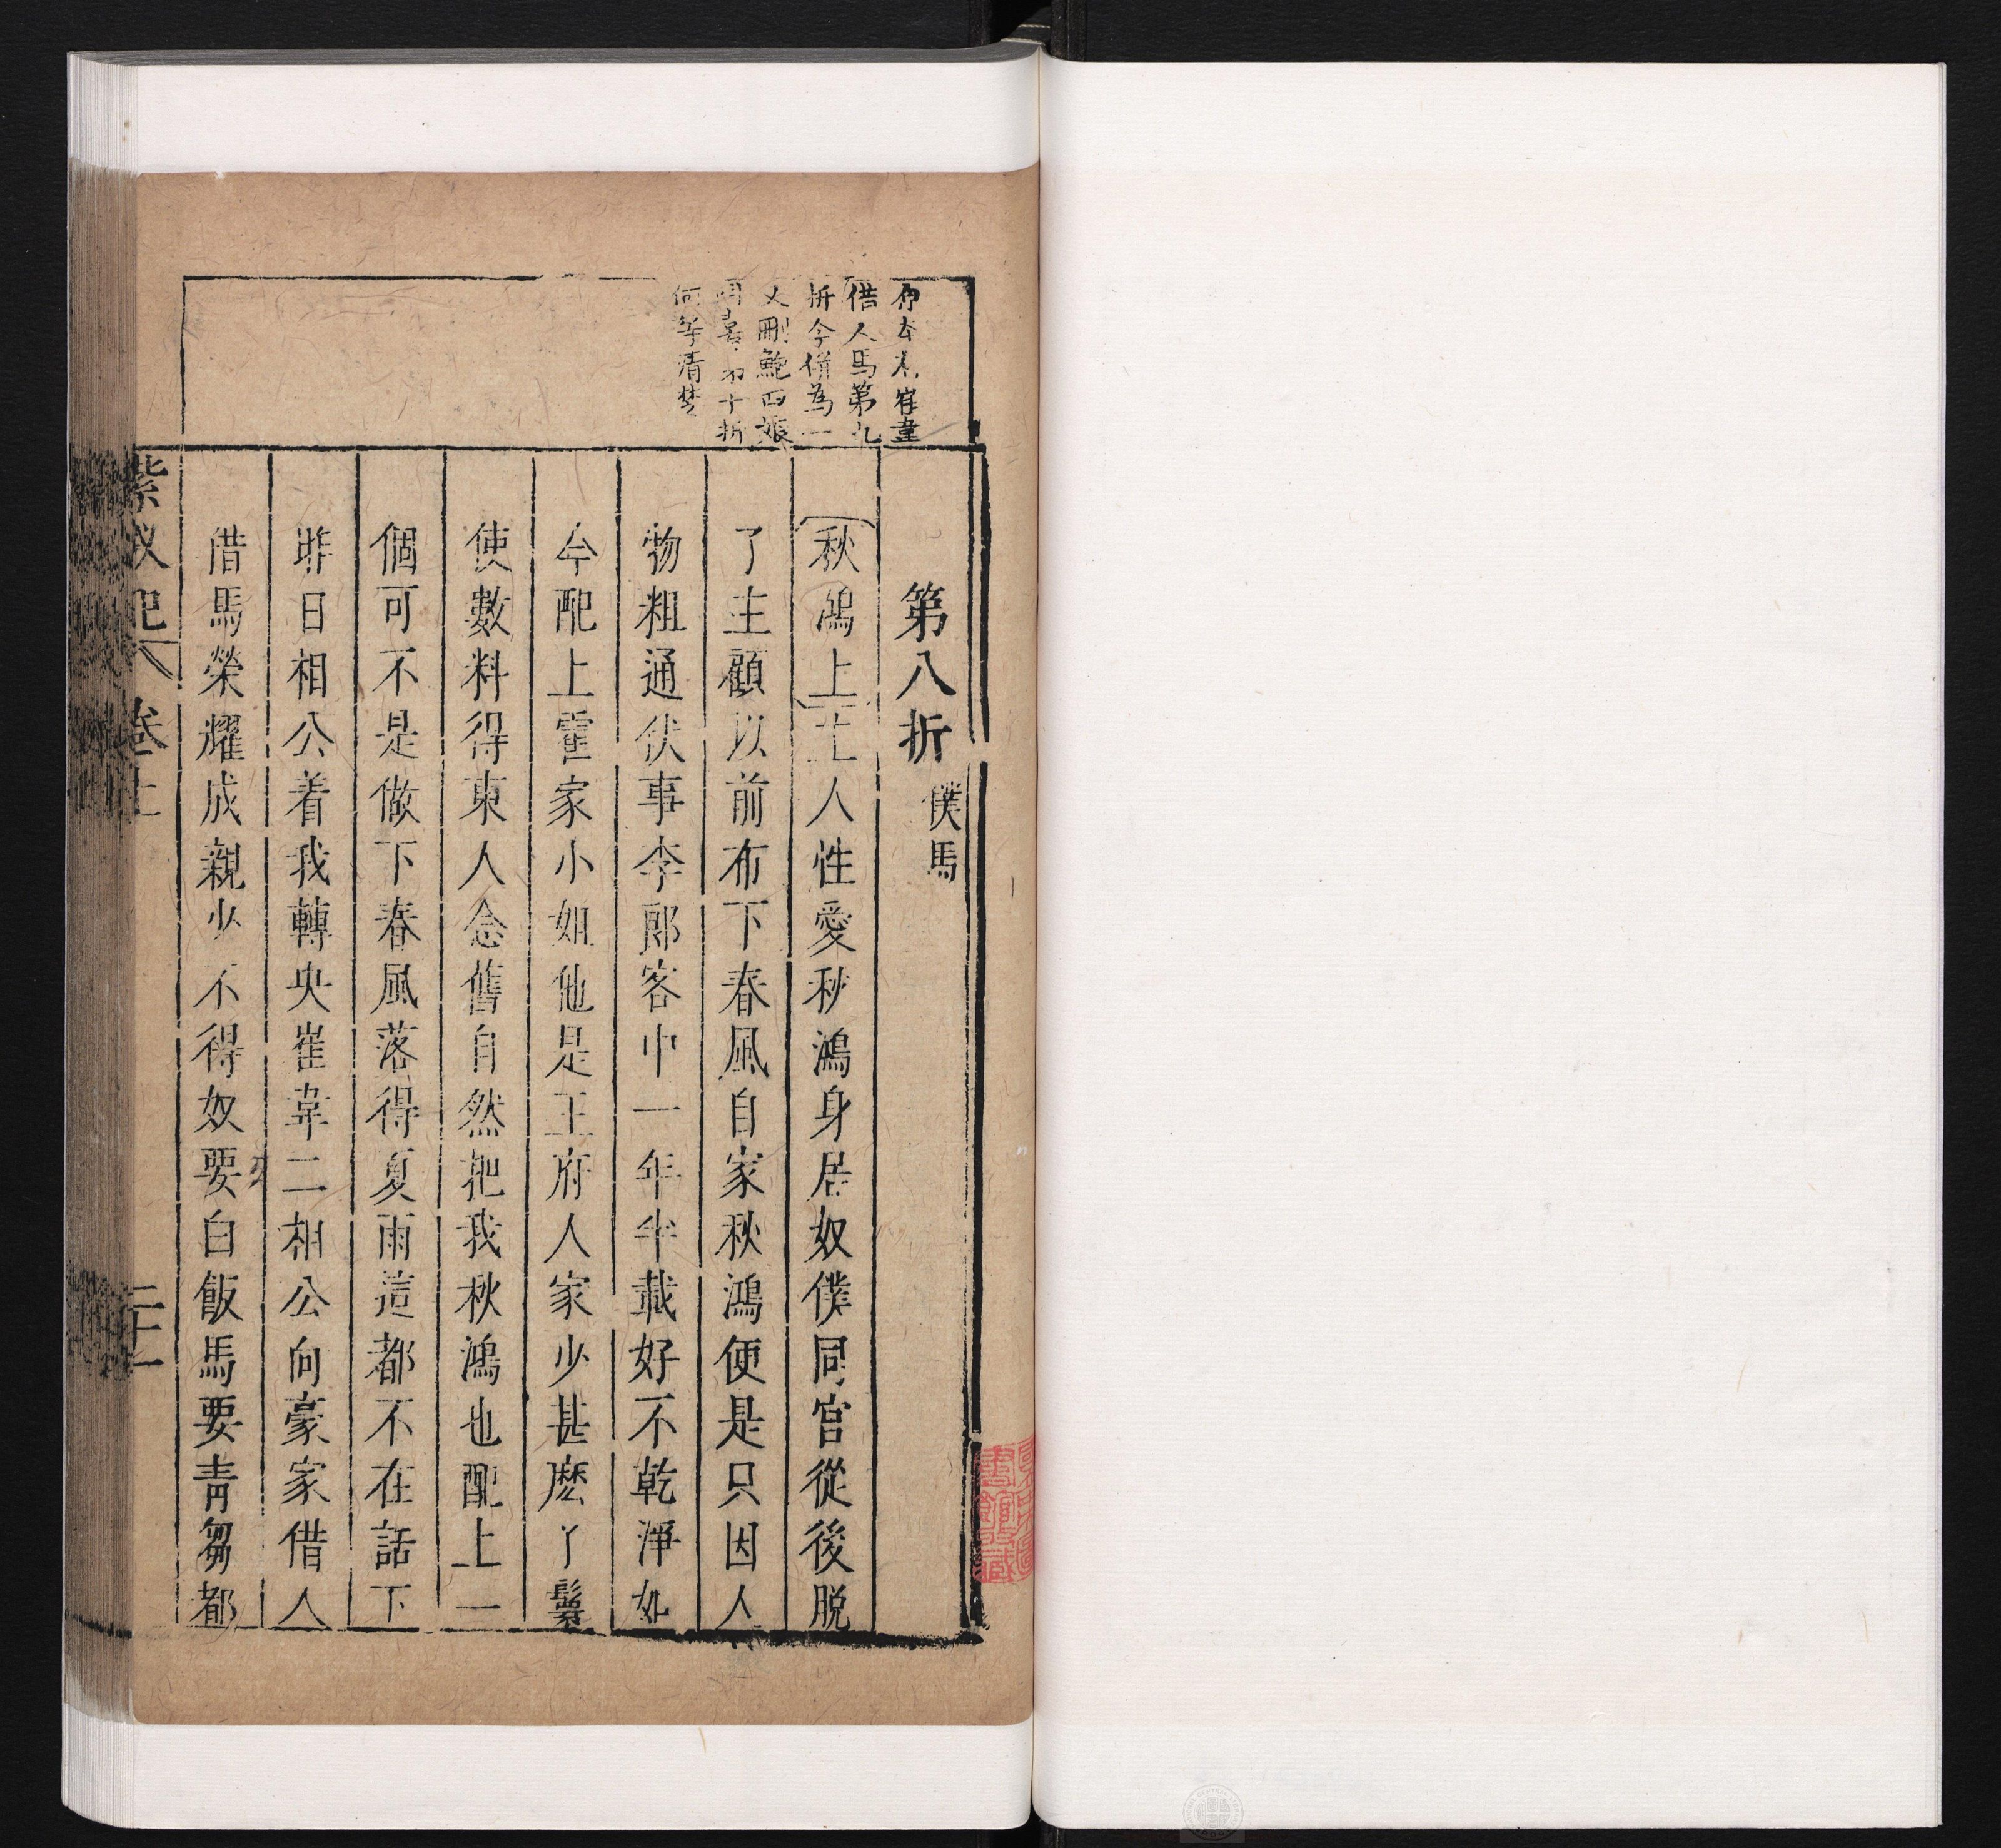 借人馬第九
折今併為一
又刪鮑四娘
何等清楚
第八折 僕馬
秋鴻上士人性愛秋鴻身居奴僕同官從後脫
了主顧以前布下春風自家秋鴻便是只因人
物粗通伏事李郎客中一年半載好不乾淨如
今配上霍家小姐他是王府人家少甚麽丫鬟
使數料得東人念舊自然把我秋鴻也配上一
個可不是做下春風落得夏雨這都不在話下
昨日相公着我轉央崔韋二相公向豪家借人
借馬榮耀成親少不得奴要白飯馬要青芻都
紫釵記 卷上 二十一